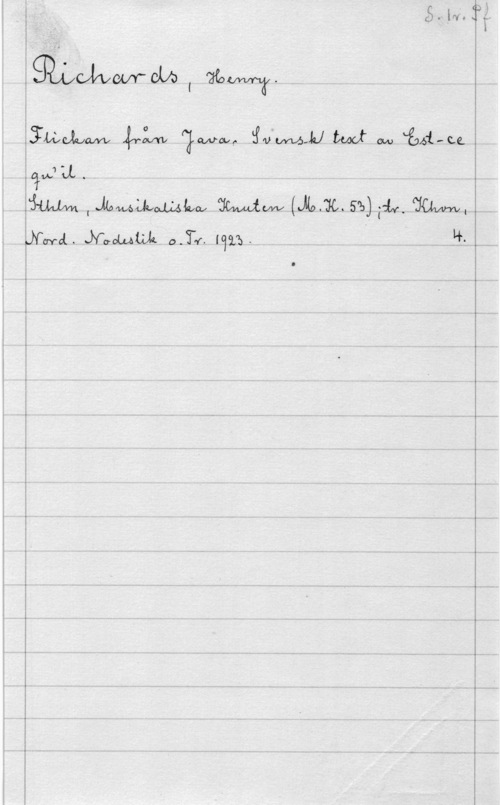 S. tr. Pf
Richards, Henry.
Flickan från Java. Svensk text av Est-ce
qu'il.
Sthlm, Musikaliska Knuten (M.K. 53); tr. Khvn,
Nord. Nodestik o. Tr. 1923. 4.